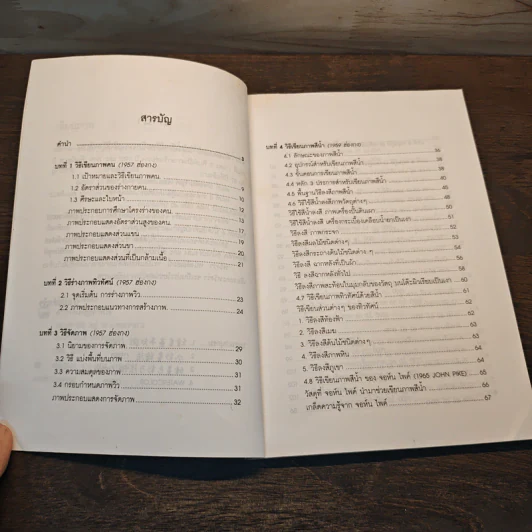 สารบัญ
คำนำ 5
บทที่ 1 วิธีเขียนภาพคน (1957 ฮ่องกง)
1.1 เป้าหมายและวิธีเขียนภาพคน 7
1.2 อัตราส่วนของร่างกายคน 9
1.3 ศรีษะและใบหน้า
ภาพประกอบการศึกษาโครงร่างของคน
ภาพประกอบแสดงอัตราส่วนสูงของคน
ภาพประกอบแสดงส่วนแขน
ภาพประกอบแสดงส่วนขา 20
ภาพประกอบแสดงส่วนที่เป็นกล้ามเนื้อ 21
บทที่ 2 วิธีร่างภาพทิวทัศน์ (1957 ฮ่องกง)
2.1 จุดเริ่มต้น การร่างภาพวิว 23
2.2 ภาพประกอบแนวทางการสร้างภาพ 24
บทที่ 3 วิธีจัดภาพ (1957 ฮ่องกง)
3.1 นิยามของการจัดภาพ 29
3.2 วิธี แบ่งพื้นที่บนภาพ 30
3.3 ความสมดุลของภาพ 31
3.4 กรอบกำหนดภาพวิว 31
ภาพประกอบแสดงการจัดภาพ 32
บทที่ 4 วิธีเขียนภาพสีน้ำ (1959 ฮ่องกง)
4.1 ลักษณะของภาพสีน้ำ 36
4.2 อุปกรณ์สำหรับเขียนภาพสีน้ำ
4.3 ขั้นตอนการเขียนภาพสีน้ำ
4.4 หลัก 3 ประการสำหรับเขียนภาพสีน้ำ 40
4.5 พื้นฐานวิธีลงสีภาพสีน้ำ
4.6 วิธีใช้สีน้ำลงสีภาพวัตถุต่างๆ
วิธีใช้สีน้ำลงสี ภาพเครื่องปั้นดินเผา 50
วิธีใช้สีน้ำลงสี เครื่องกระเบื้องเคลือบน้ำยาเป็นเงา 51
วิธีลงสี ภาพกระจก 52
วิธีลงสีผลไม้ชนิดต่างๆ 53
วิธีลงสีกระถางต้นไม้ชนิดต่างๆ 54
วิธีลงสี ฉากหลังที่เป็นผ้า
วิธี ลงสีฉากหลังทั่วไป 58
วิธีลงสีภาพสะท้อนในมุมกลับของวัตถุ บนโต๊ะผิวเรียบเป็นเงา 60
4.7 วิธีเขียนภาพทิวทัศน์ด้วยสีน้ำ 61
วิธีเขียนส่วนต่างๆ ของทิวทัศน์
1. วิธีลงสีท้องฟ้า
2. วิธีลงสีเมฆ
3. วิธีลงสีต้นไม้ชนิดต่างๆ
4. วิธีลงสีภาพหิน 64
5. วิธีลงสีภูเขา 64
4.8 วิธีเขียนภาพสีน้ำ ของ จอห์น ไพค์ (1965 JOHN PIKE) 65
วัสดุที่ จอห์น ไพค์ นำมาช่วยเขียนภาพสีน้ำ 66
เกล็ดความรู้จาก จอห์น ไพค์ 67